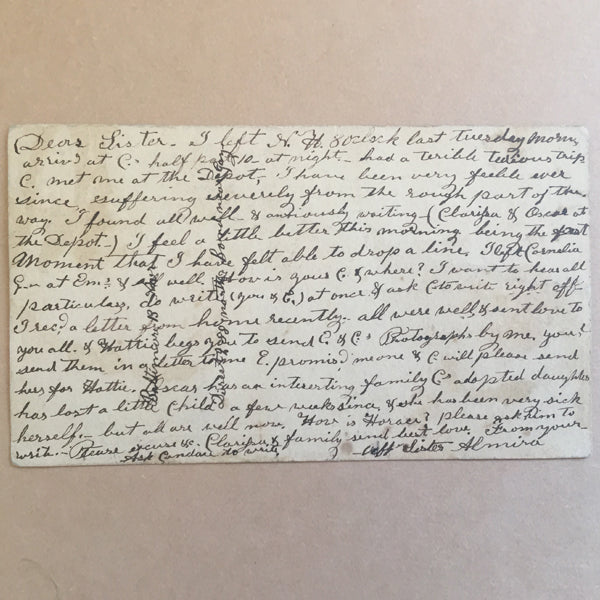 (Dear Sister - I left N. H. 8 oclock last tuesday morn,
arriv'd at C. half past 10 - at night - had a terible tedious trip
C. met me at the Depot, I have been very feeble ever
since, suffering severely from the rough part of the
way. I found all well & anxiously waiting - (Clarissa & Oscar at
the Depot -) I feel a little better this morning being the first
Moment that I have felt able to drop a line. I left Cornelia
at Em's & all well. How is your C. & where? I want to hear all
particulars, do write, (you & C.) at once & ask C to write right off.
I rec'd a letter from home recently. all were well, & sent love to
you all. & Hattie begs you to send E. & C's Photographs by me, you?
send them in a letter to me E. promis'd me one & C. will please send
hers for Hattie. Oscar has an interesting family C's adopted daughter
has lost a little child a few weeks since, & she has been very sick
herself. - but all are well now. How is Horace? please ask him to
write. - Please excuse &c. Clarissa & family send best love. From your
Ask Candace to write. aff Sister Almira